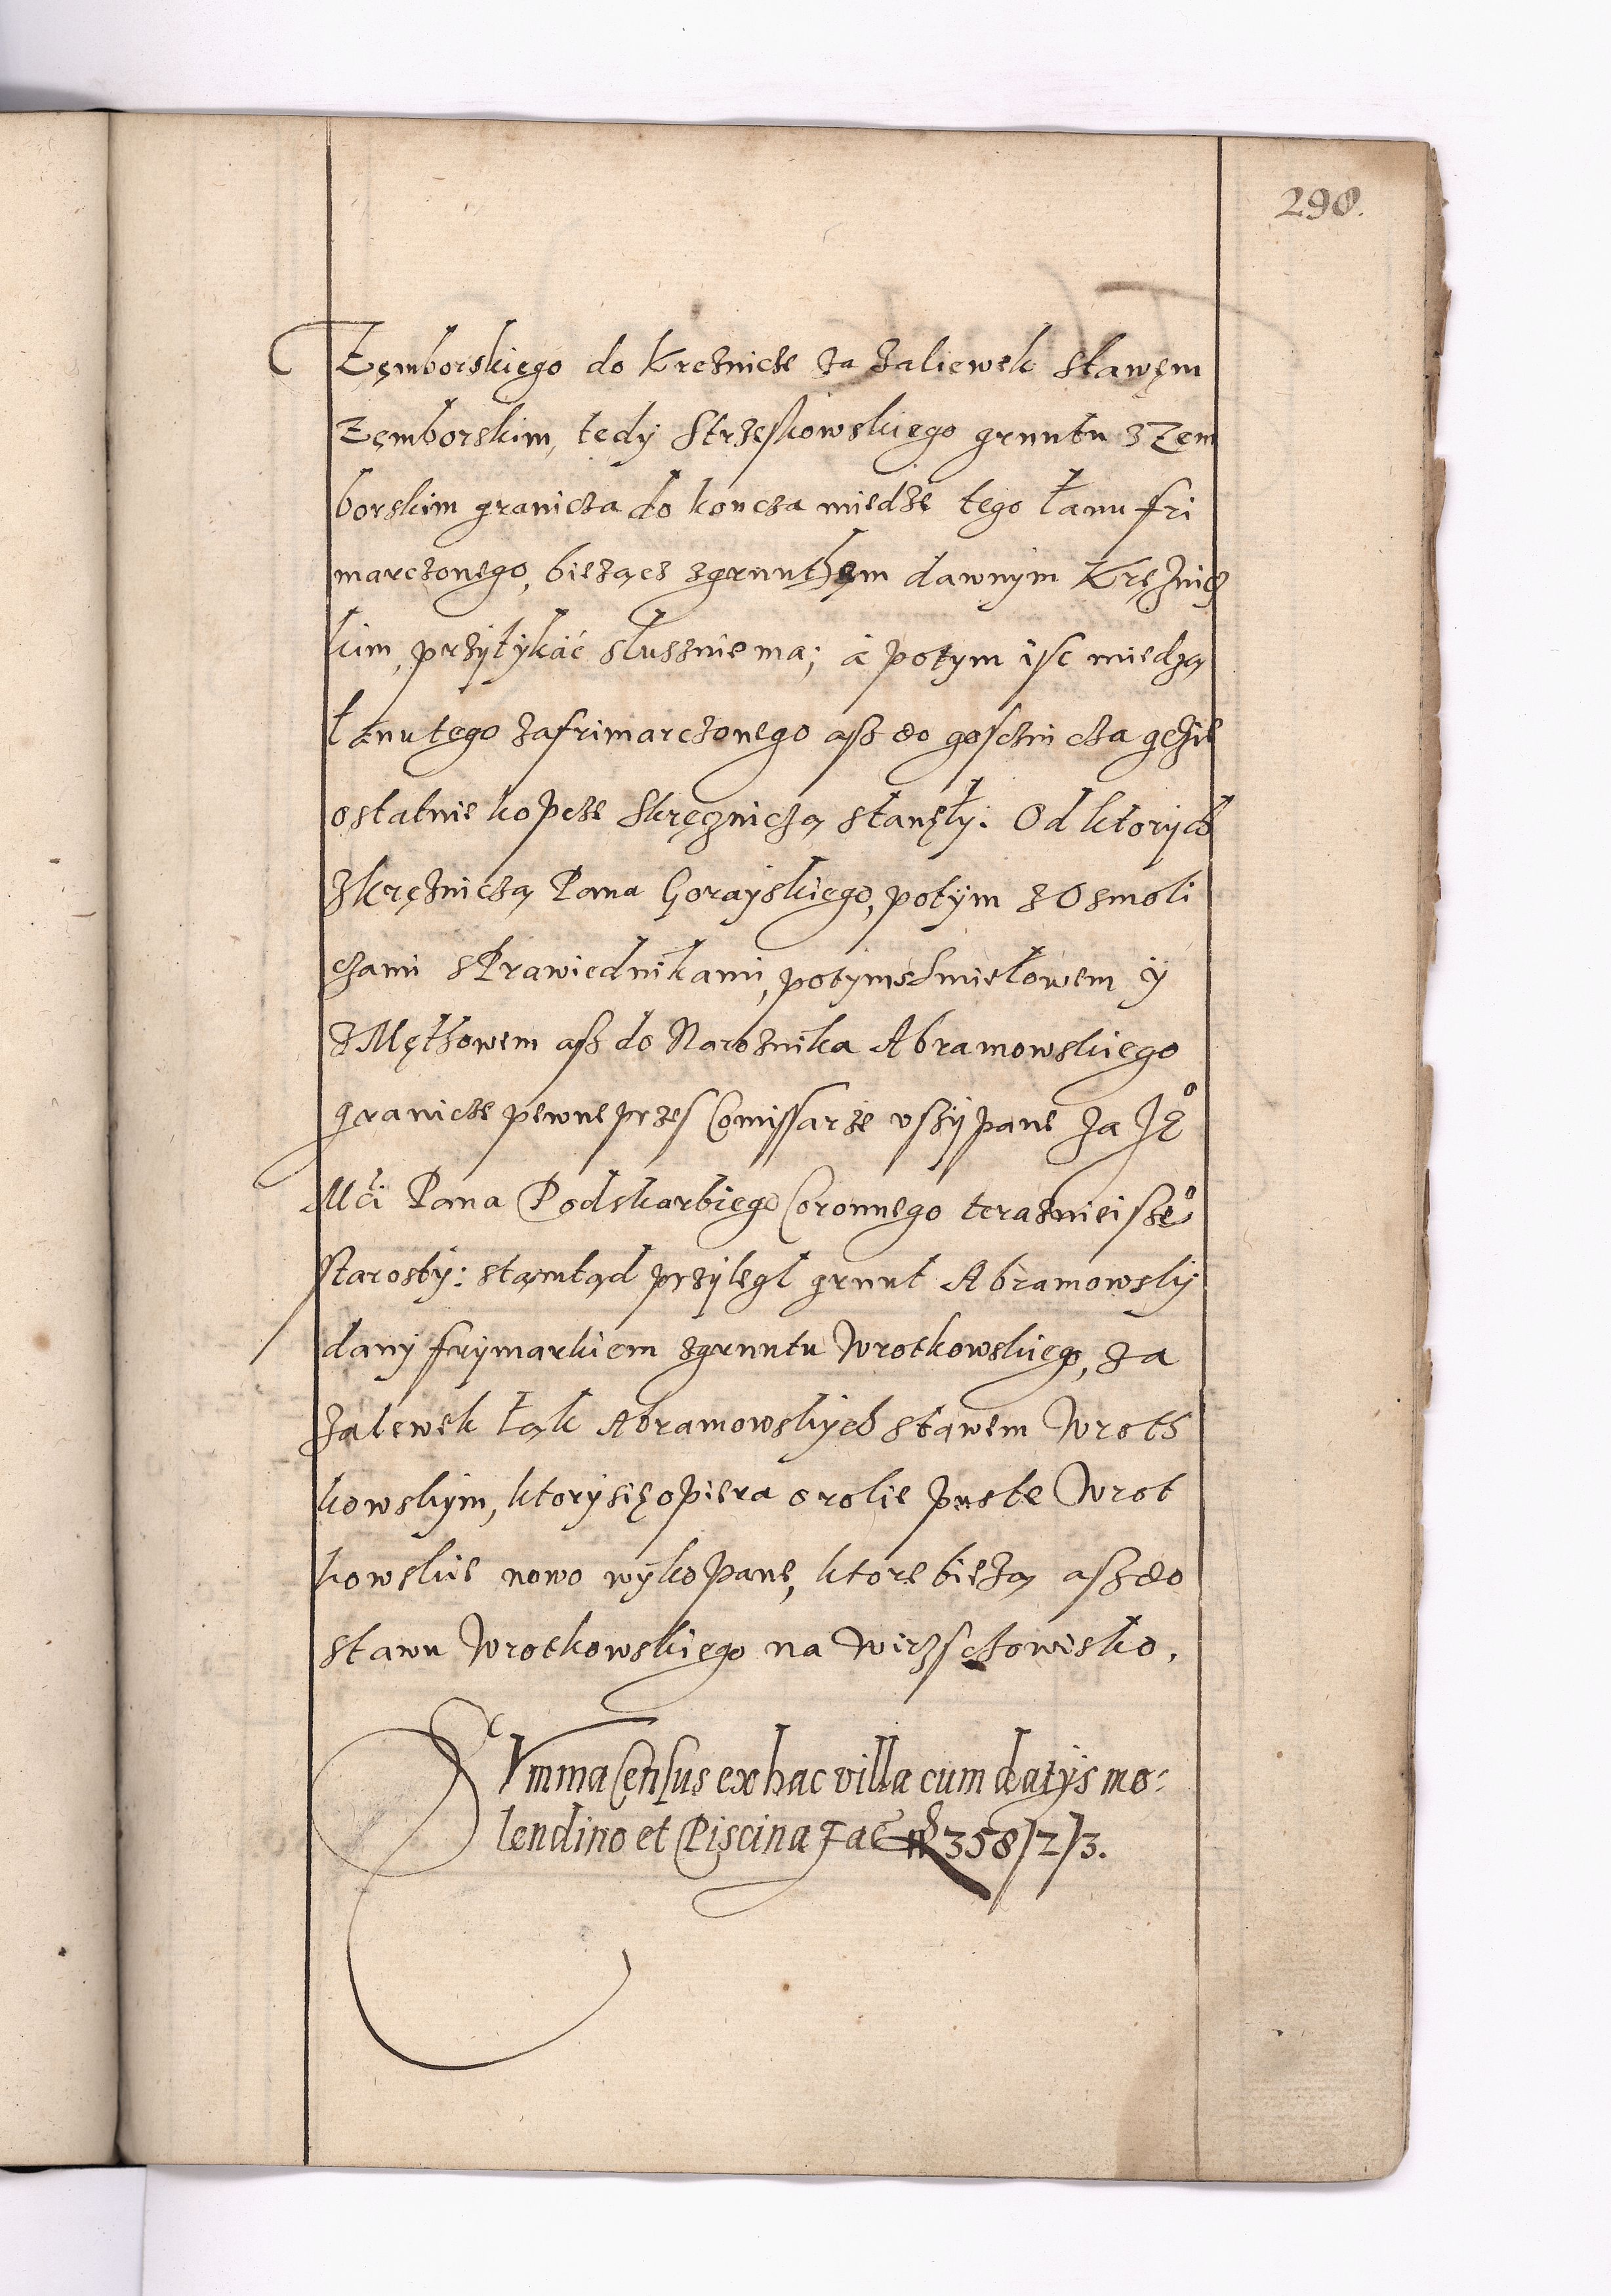 298.
Zęmborskiego do Krężnicze za zaliewek stawęm
Zęmborskim, tedy Strzeskowskiego gruntu z Zem
borskim granicza do koncza miedze tego łanu fri
marczonego, bieżącz zgrunthem dawnym Krężnicz
kim, przytykać słusznie ma; á potym isc miedzą
łanu tego zafrimarczonego asz do goscznicza gdzie
ostatnie kopcze Skręzniczą stanęły: Od ktorych
zkrężniczą Pana Gorayskiego, potym z Osmoli
czami s Prawiednikami, potym s Smiełowem ÿ
z Męthowem asz do Narożnika Abramowskiego
granicze pewne przes Comissarze uszypane za Je͛o
Mći Pana Podskarbiego Coronnego teraznieiszeo
Starosty: stąmtąd przylegl grunt Abramowsky
dany frymarkiem zgruntu Wrotkowskiego, za
zalewek łąk Abramowskych stawem Wroth
kowskym, ktory się opiera o rolie puste Wrot
kowskie nowo wykopane, ktore bieżą asz do
stawu Wrotkowskiego na Wirzschowisko.
SVmma Census ex hac villa cum datijs mo:
lendino et Piscina fac 358/2/3.